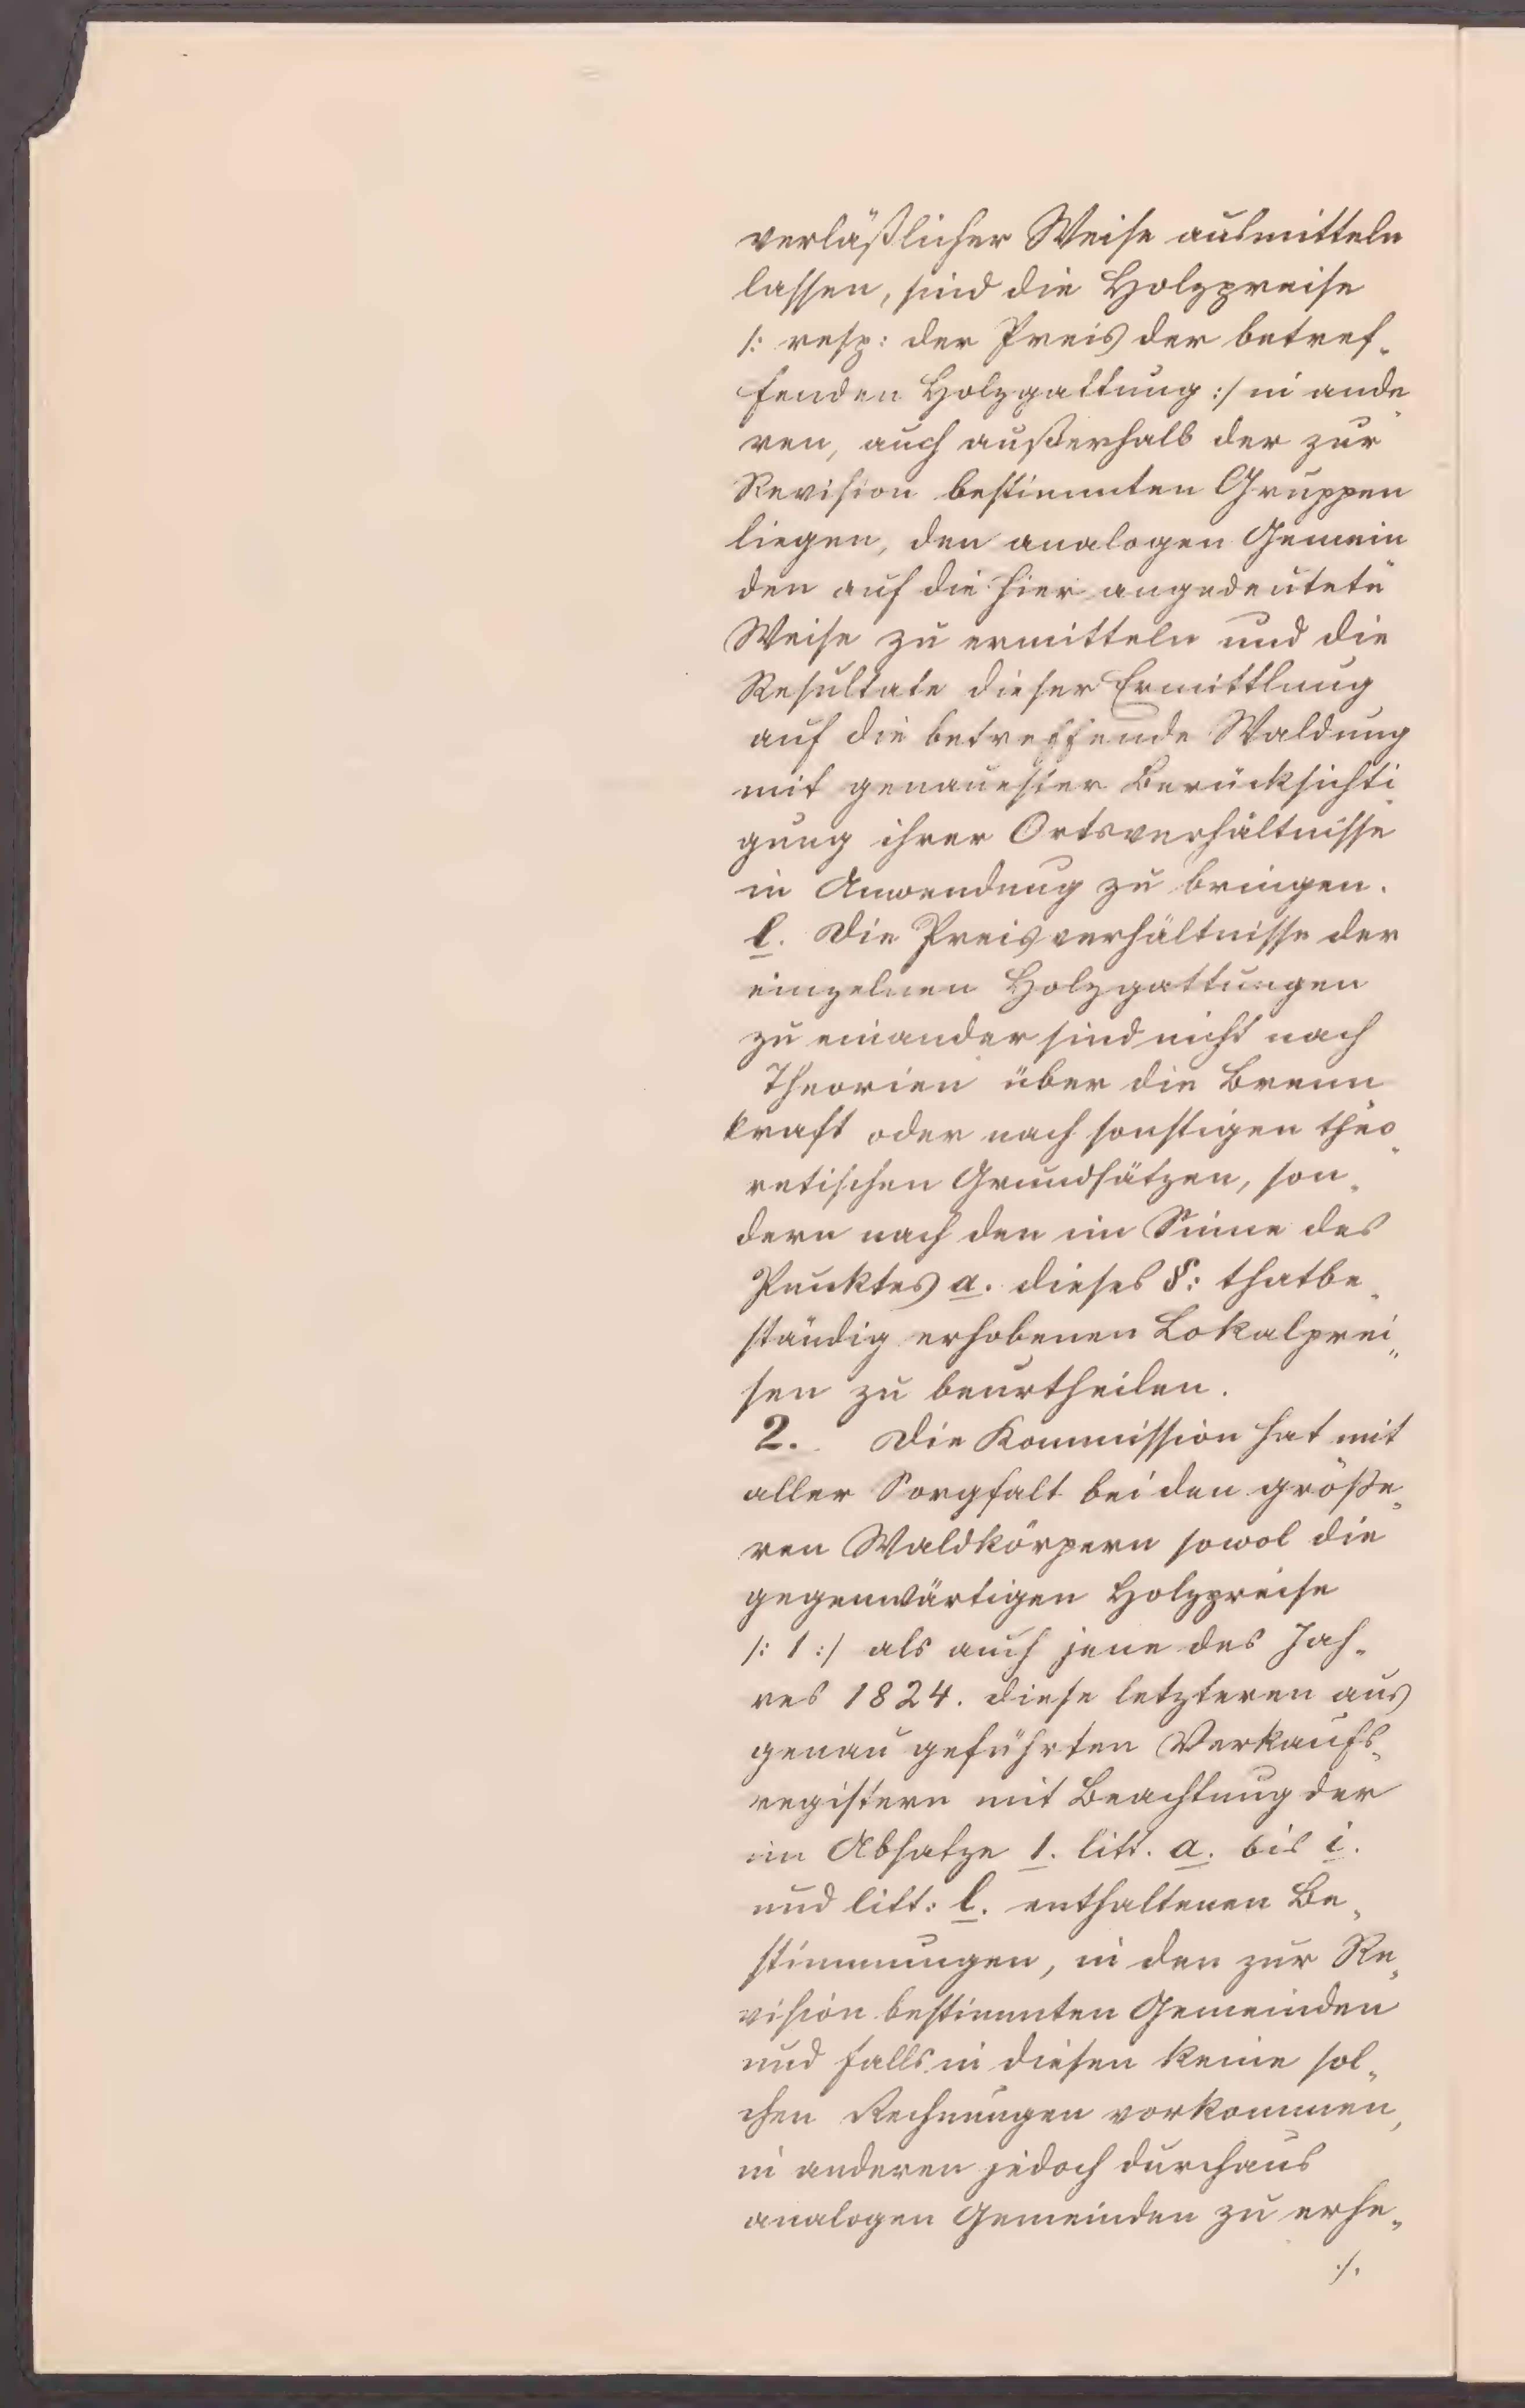 verläßlicher Weise ausmitteln
lassen, sind die Holzpreise
/: resp: der Preis der betref-
fenden Holzgattung :/ in ande-
ren, auch außerhalb der zur
Revision bestimmten Gruppen
liegen, den analogen Gemein
den auf die hier angedeutete
Weise zu ermitteln und die
Resultate dieser Ermittlung
auf die betreffende Waldung
mit genauester Berücksichti-
gung ihrer Ortsverhältnisse
in Anwendung zu bringen.
l. Die Preisverhältnisse der
einzelnen Holzgattungen
zu einander sind nicht nach
Theorien über die Brenn
kraft oder nach sonstigen theo-
retischen Grundsätzen, son-
dern nach den im Sinne des
Punktes a. dieses §: thatbe-
ständig erhobenen Lokalprei-
sen zu beurtheilen.
2. Die Kommission hat mit
aller Sorgfalt bei den größe-
ren Waldkörpern sowol die
gegenwärtigen Holzpreise
/: 1 :/ als auch jene des Jah-
res 1824. diese letzteren aus
genau geführten Verkaufs-
registern mit Beachtung der
im Absatze 1. litt. a. bis i.
und litt: l. enthaltenen Be-
stimmungen, in den zur Re-
vision bestimmten Gemeinden
und falls in diesen keine sol-
chen Rechnungen vorkommen,
in anderen jedoch durchaus
analogen Gemeinden zu erhe-
./.